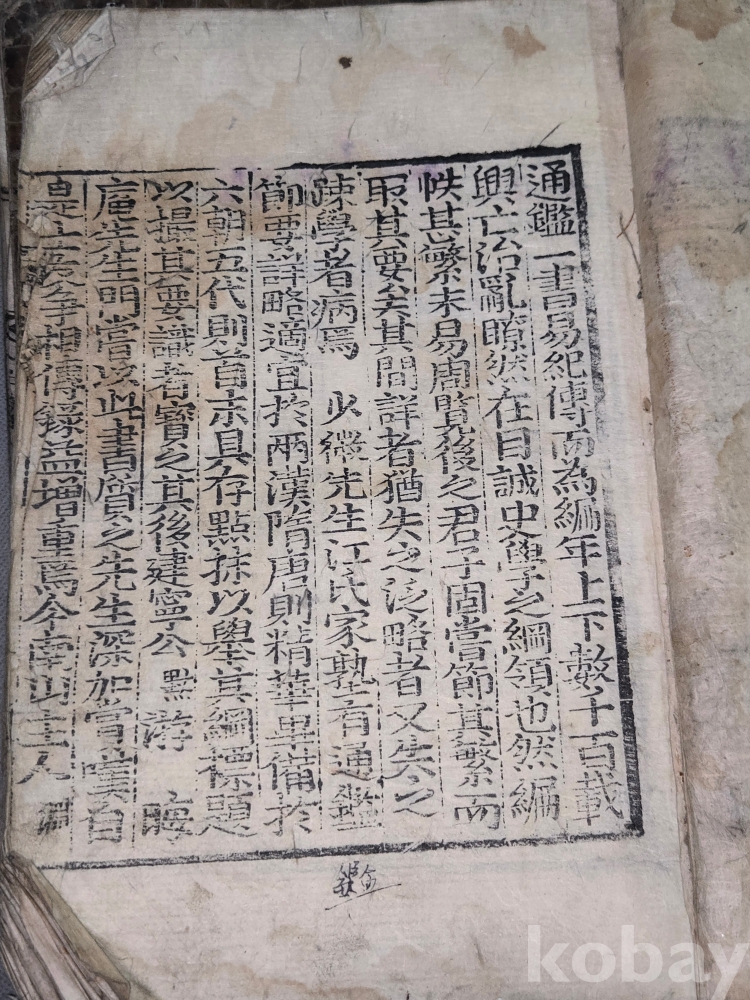 通鑑一書易紀傳而為編年上下數千百載
興亡治亂瞭然在目誠史學之綱領也然編
帙其繁未易周覽後之君子固嘗節其繁而
取其要矣其間詳者猶失之泛略者又失之
踈學者病焉 少微先生江氏家塾有通鑑
節要詳略適宜於兩漢隋唐則精華畢備於
六朝五代則首末具存點抹以擧其綱標題
以撮其要識者寶之其後建寧公 默游 晦
庵先生門嘗以此書質之先生深加賞嘆自
是士友爭相傳錄益增重焉今南山主人 淵
鑑
kobay